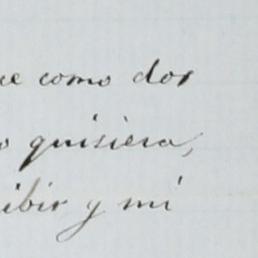 como dos
quisiera,
ibir y mi